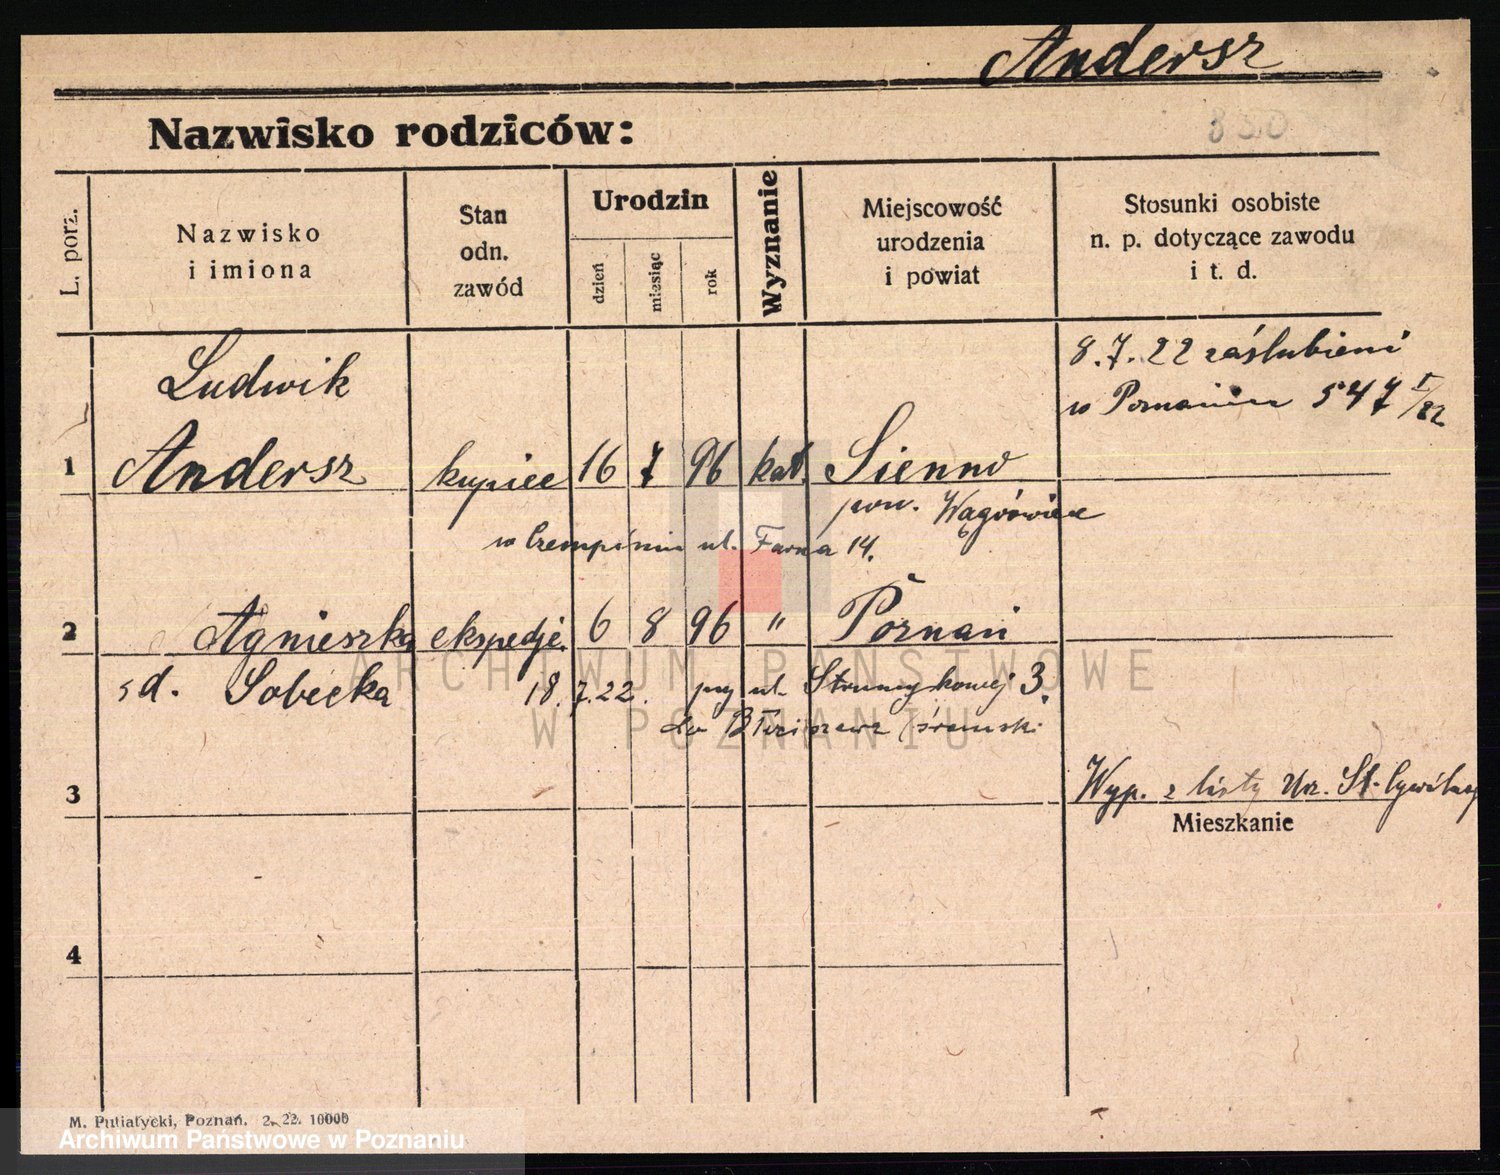 Andersz
Nazwisko rodziców:
850
L. porz.
Nazwisko
i imiona
Stan
odn.
zawód
Urodzin
dzień
miesiąc
rok
Wyznanie
Miejscowość
urodzenia
i powiat
Stosunki osobiste
n. p. dotyczące zawodu
i t. d.
8.7.22 zaślubieni
w Poznaniu 547 I/22
Ludwik
1 Andersz kupiec 16 7 96 kat. Sienno
pow. Wągrówiec
w Czempiniu ul. Farna 14.
2 Agnieszka ekspedje. 6 8 96 " Poznań
sd. Sobecka 18.7.22. przy ul. Strumykowej 3.
do śremski
3
Wyp. z listy Urz. St. Cywilny
Mieszkanie
4
ARCHIWUM PAŃSTWOWE
W POZNANIU
M. Putiatycki, Poznań. 2. 22. 10000
Archiwum Państwowe w Poznaniu